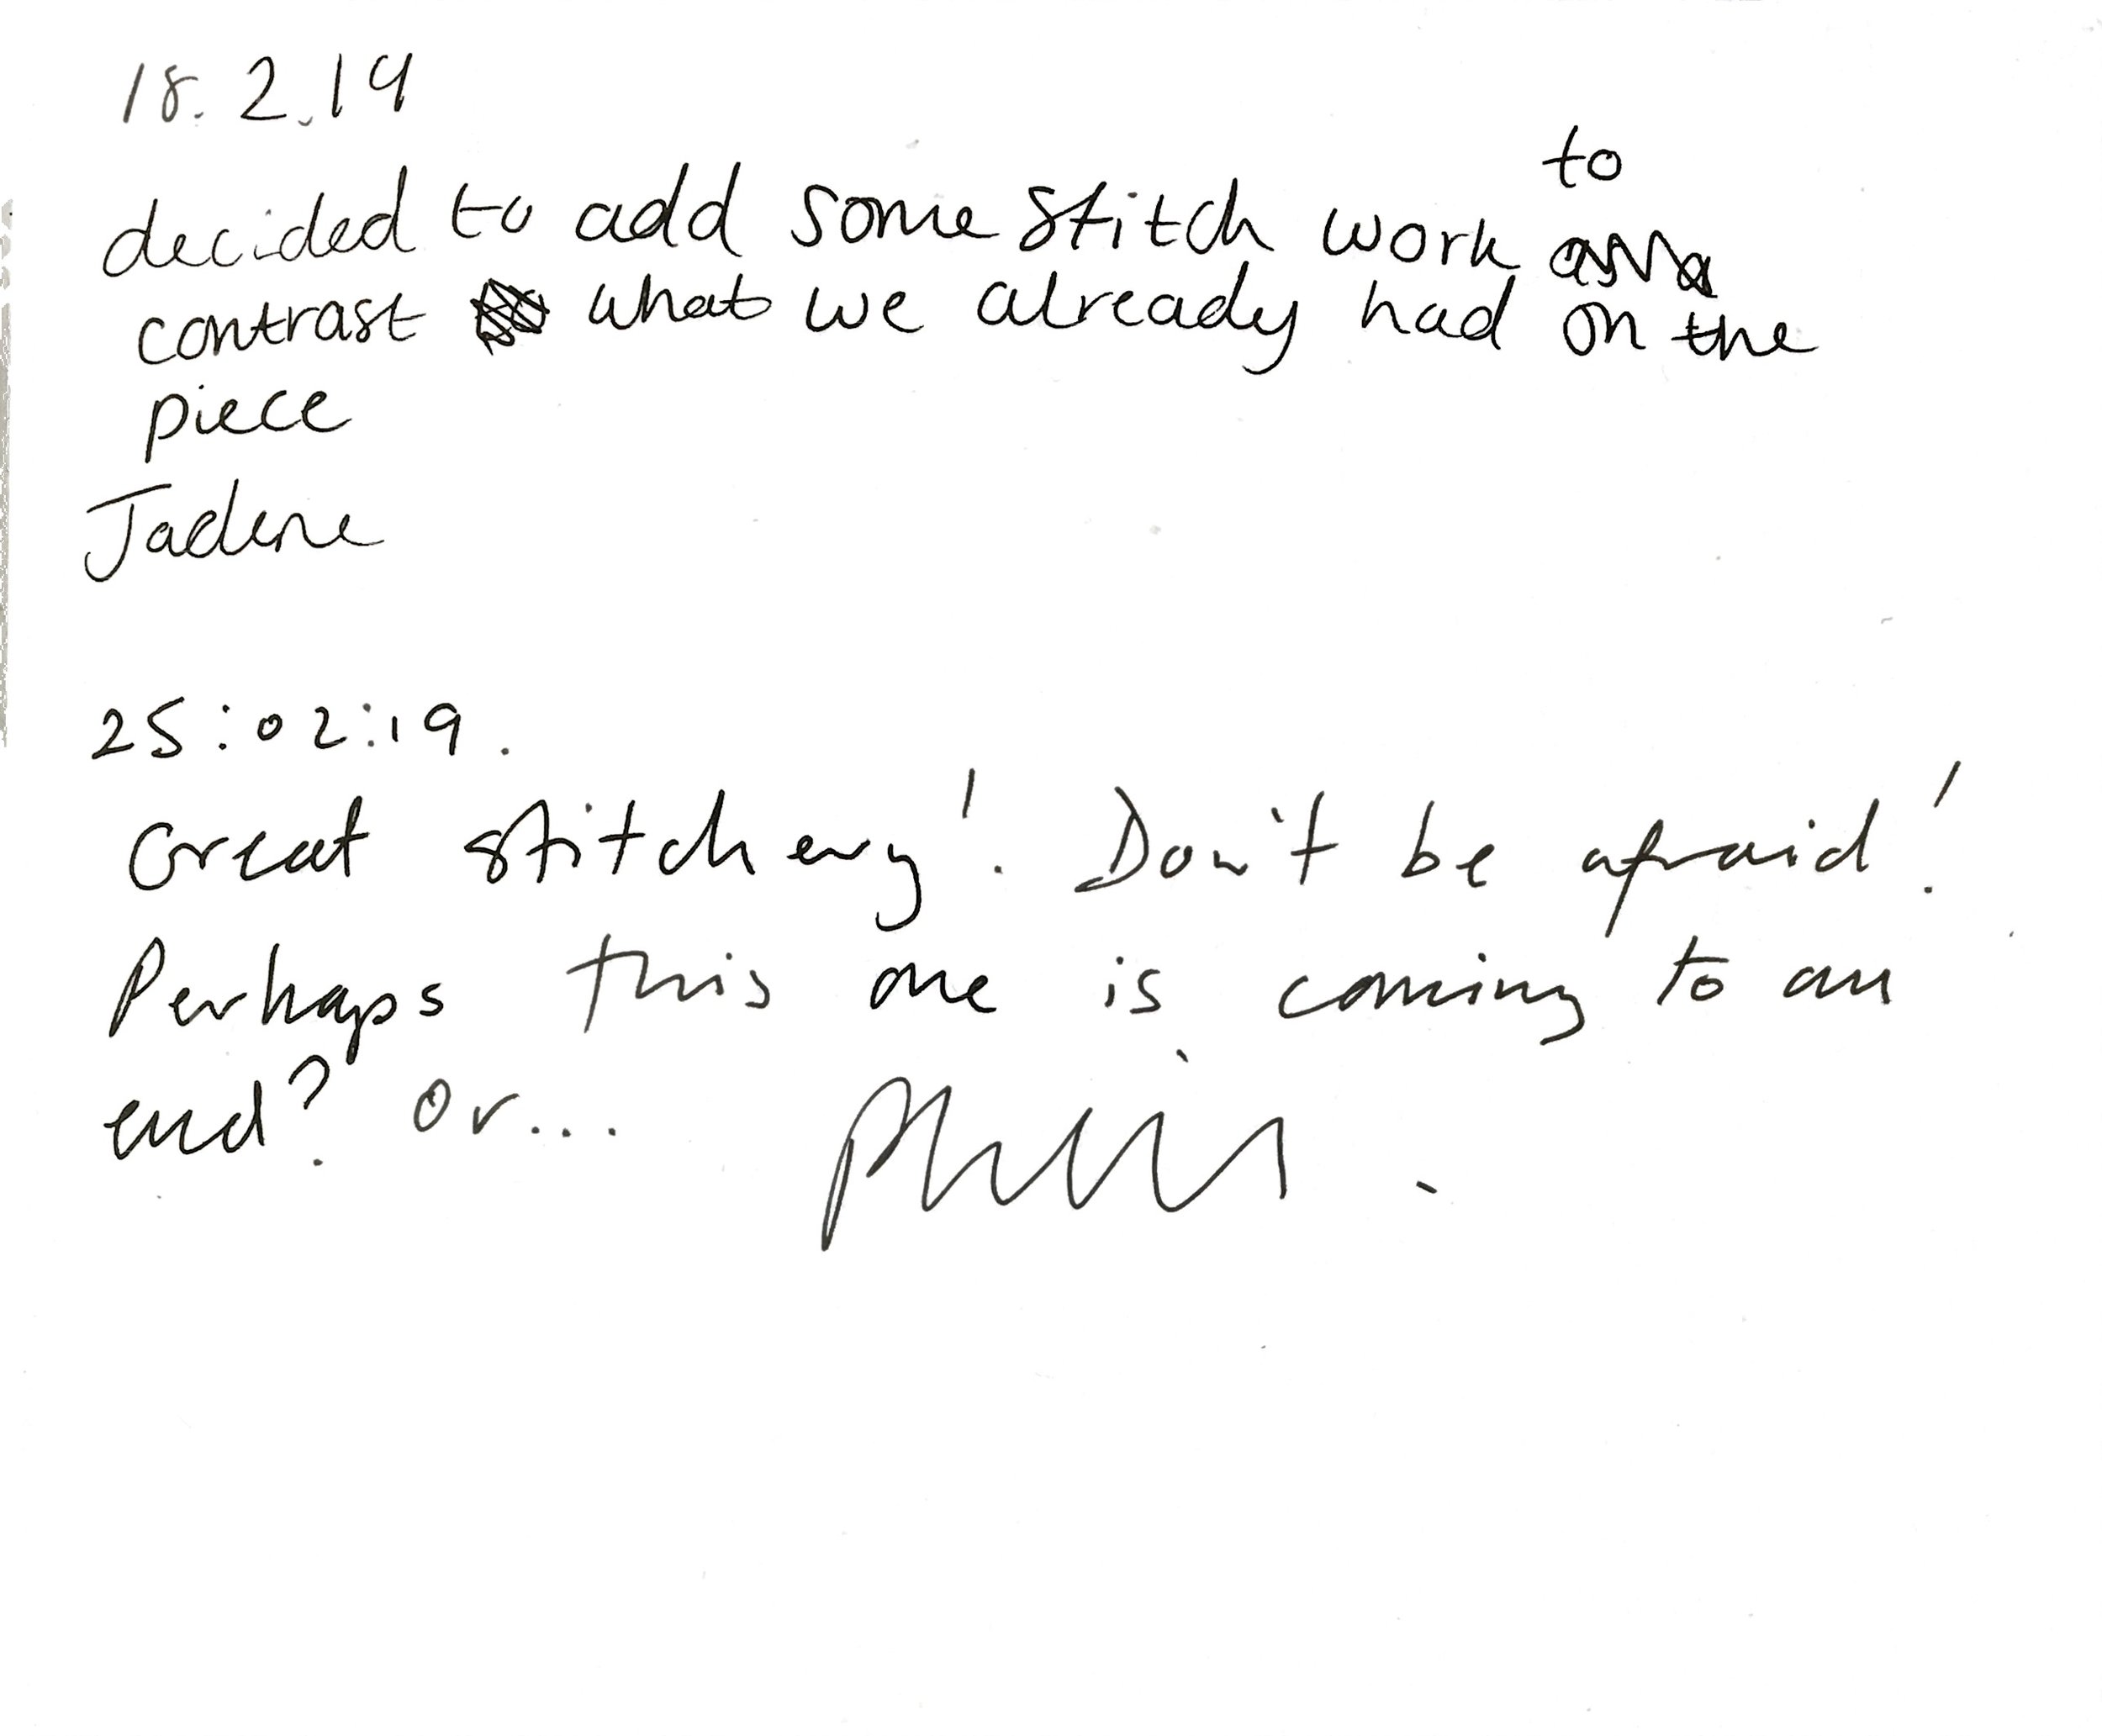 18.2.19
decided to add some stitch work to
contrast what we already had on the
piece
Jadene
25:02:19.
Great stitchery! Don't be afraid!
Perhaps this one is coming to an
end? or...